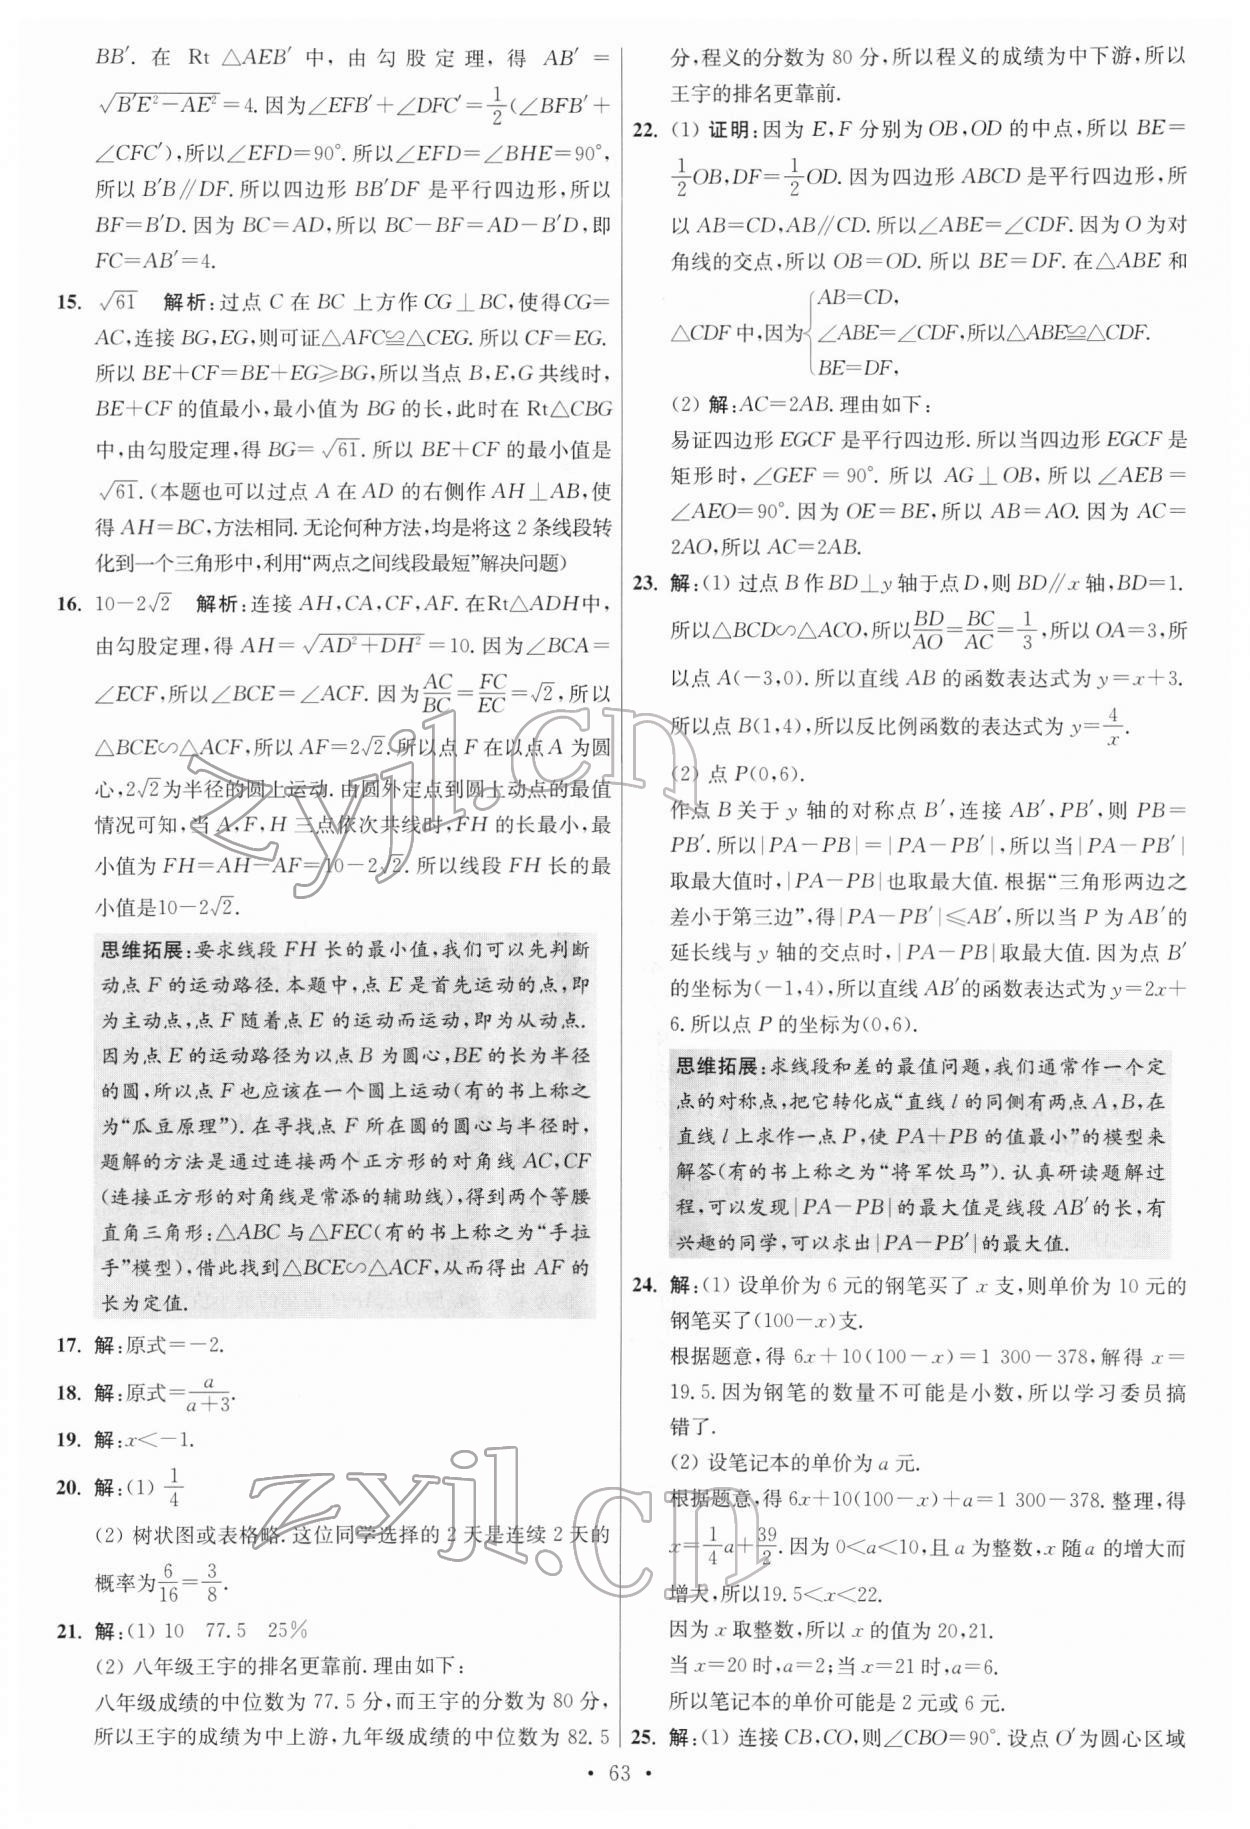 BB′. 在 Rt △AEB′ 中, 由勾股定理, 得 AB′ =
√(B′E²－AE²)＝4. 因为∠EFB′＋∠DFC′＝1/2(∠BFB′＋
∠CFC′),所以∠EFD＝90°. 所以∠EFD＝∠BHE＝90°,
所以 B′B∥DF. 所以四边形 BB′DF 是平行四边形,所以
BF＝B′D. 因为 BC＝AD,所以 BC－BF＝AD－B′D,即
FC＝AB′＝4.
15. √61 解析:过点 C 在 BC 上方作 CG⊥BC,使得CG＝
AC,连接 BG,EG,则可证△AFC≌△CEG. 所以 CF＝EG.
所以 BE＋CF＝BE＋EG≥BG,所以当点 B,E,G 共线时,
BE＋CF 的值最小,最小值为 BG 的长,此时在 Rt△CBG
中,由勾股定理,得 BG＝√61. 所以 BE＋CF 的最小值是
√61. (本题也可以过点 A 在 AD 的右侧作 AH⊥AB,使
得 AH＝BC,方法相同. 无论何种方法,均是将这 2 条线段转
化到一个三角形中,利用“两点之间线段最短”解决问题)
16. 10－2√2 解析:连接 AH,CA,CF,AF. 在Rt△ADH中,
由勾股定理,得 AH＝√(AD²＋DH²)＝10. 因为∠BCA＝
∠ECF,所以∠BCE＝∠ACF. 因为AC/BC＝FC/EC＝√2,所以
△BCE∽△ACF,所以 AF＝2√2. 所以点 F 在以点 A 为圆
心,2√2为半径的圆上运动. 由圆外定点到圆上动点的最值
情况可知,当 A,F,H 三点依次共线时,FH 的长最小,最
小值为 FH＝AH－AF＝10－2√2. 所以线段 FH 长的最
小值是10－2√2.
思维拓展:要求线段 FH 长的最小值,我们可以先判断
动点 F 的运动路径. 本题中,点 E 是首先运动的点,即
为主动点,点 F 随着点 E 的运动而运动,即为从动点.
因为点 E 的运动路径为以点 B 为圆心,BE 的长为半径
的圆,所以点 F 也应该在一个圆上运动(有的书上称之
为“瓜豆原理”). 在寻找点 F 所在圆的圆心与半径时,
题解的方法是通过连接两个正方形的对角线 AC,CF
(连接正方形的对角线是常添的辅助线),得到两个等腰
直角三角形:△ABC 与△FEC(有的书上称之为“手拉
手”模型),借此找到△BCE∽△ACF,从而得出 AF 的
长为定值.
17. 解:原式＝－2.
18. 解:原式＝a/(a＋3).
19. 解:x＜－1.
20. 解:(1) 1/4
(2) 树状图或表格略. 这位同学选择的 2 天是连续 2 天的
概率为6/16＝3/8.
21. 解:(1) 10 77.5 25%
(2) 八年级王宇的排名更靠前. 理由如下:
八年级成绩的中位数为 77.5 分,而王宇的分数为 80 分,
所以王宇的成绩为中上游,九年级成绩的中位数为 82.5
分,程义的分数为 80 分,所以程义的成绩为中下游,所以
王宇的排名更靠前.
22. (1) 证明:因为 E,F 分别为 OB,OD 的中点,所以 BE＝
1/2OB,DF＝1/2OD. 因为四边形 ABCD 是平行四边形,所
以 AB＝CD,AB∥CD. 所以∠ABE＝∠CDF. 因为 O 为对
角线的交点,所以 OB＝OD. 所以 BE＝DF. 在△ABE 和
AB＝CD,
△CDF 中,因为{∠ABE＝∠CDF,所以△ABE≌△CDF.
BE＝DF,
(2) 解:AC＝2AB. 理由如下:
易证四边形 EGCF 是平行四边形. 所以当四边形 EGCF 是
矩形时,∠GEF＝90°. 所以 AG⊥OB,所以∠AEB＝
∠AEO＝90°. 因为 OE＝BE,所以 AB＝AO. 因为 AC＝
2AO,所以 AC＝2AB.
23. 解:(1) 过点 B 作 BD⊥y 轴于点 D,则 BD∥x 轴,BD＝1.
所以△BCD∽△ACO,所以BD/AO＝BC/AC＝1/3,所以 OA＝3,所
以点 A(－3,0). 所以直线 AB 的函数表达式为 y＝x＋3.
所以点 B(1,4),所以反比例函数的表达式为 y＝4/x.
(2) 点 P(0,6).
作点 B 关于 y 轴的对称点 B′,连接 AB′,PB′,则 PB＝
PB′. 所以|PA－PB|＝|PA－PB′|,所以当|PA－PB′|
取最大值时,|PA－PB|也取最大值. 根据“三角形两边之
差小于第三边”,得|PA－PB′|≤AB′,所以当 P 为 AB′的
延长线与 y 轴的交点时,|PA－PB|取最大值. 因为点 B′
的坐标为(－1,4),所以直线 AB′的函数表达式为 y＝2x＋
6. 所以点 P 的坐标为(0,6).
思维拓展:求线段和差的最值问题,我们通常作一个定
点的对称点,把它转化成“直线 l 的同侧有两点 A,B,在
直线 l 上求作一点 P,使 PA＋PB 的值最小”的模型来
解答(有的书上称之为“将军饮马”). 认真研读题解过
程,可以发现|PA－PB|的最大值是线段 AB′的长,有
兴趣的同学,可以求出|PA－PB′|的最大值.
24. 解:(1) 设单价为 6 元的钢笔买了 x 支,则单价为 10 元的
钢笔买了(100－x)支.
根据题意,得 6x＋10(100－x)＝1 300－378,解得 x＝
19.5. 因为钢笔的数量不可能是小数,所以学习委员搞
错了.
(2) 设笔记本的单价为 a 元.
根据题意,得 6x＋10(100－x)＋a＝1 300－378. 整理,得
x＝1/4a＋39/2. 因为 0＜a＜10,且 a 为整数,x 随a 的增大而
增大,所以19.5＜x＜22.
因为 x 取整数,所以 x 的值为 20,21.
当 x＝20 时,a＝2;当 x＝21 时,a＝6.
所以笔记本的单价可能是 2 元或 6 元.
25. 解:(1) 连接 CB,CO,则∠CBO＝90°. 设点 O′为圆心区域
• 63 •
zyjl.cn
zyjl.cn